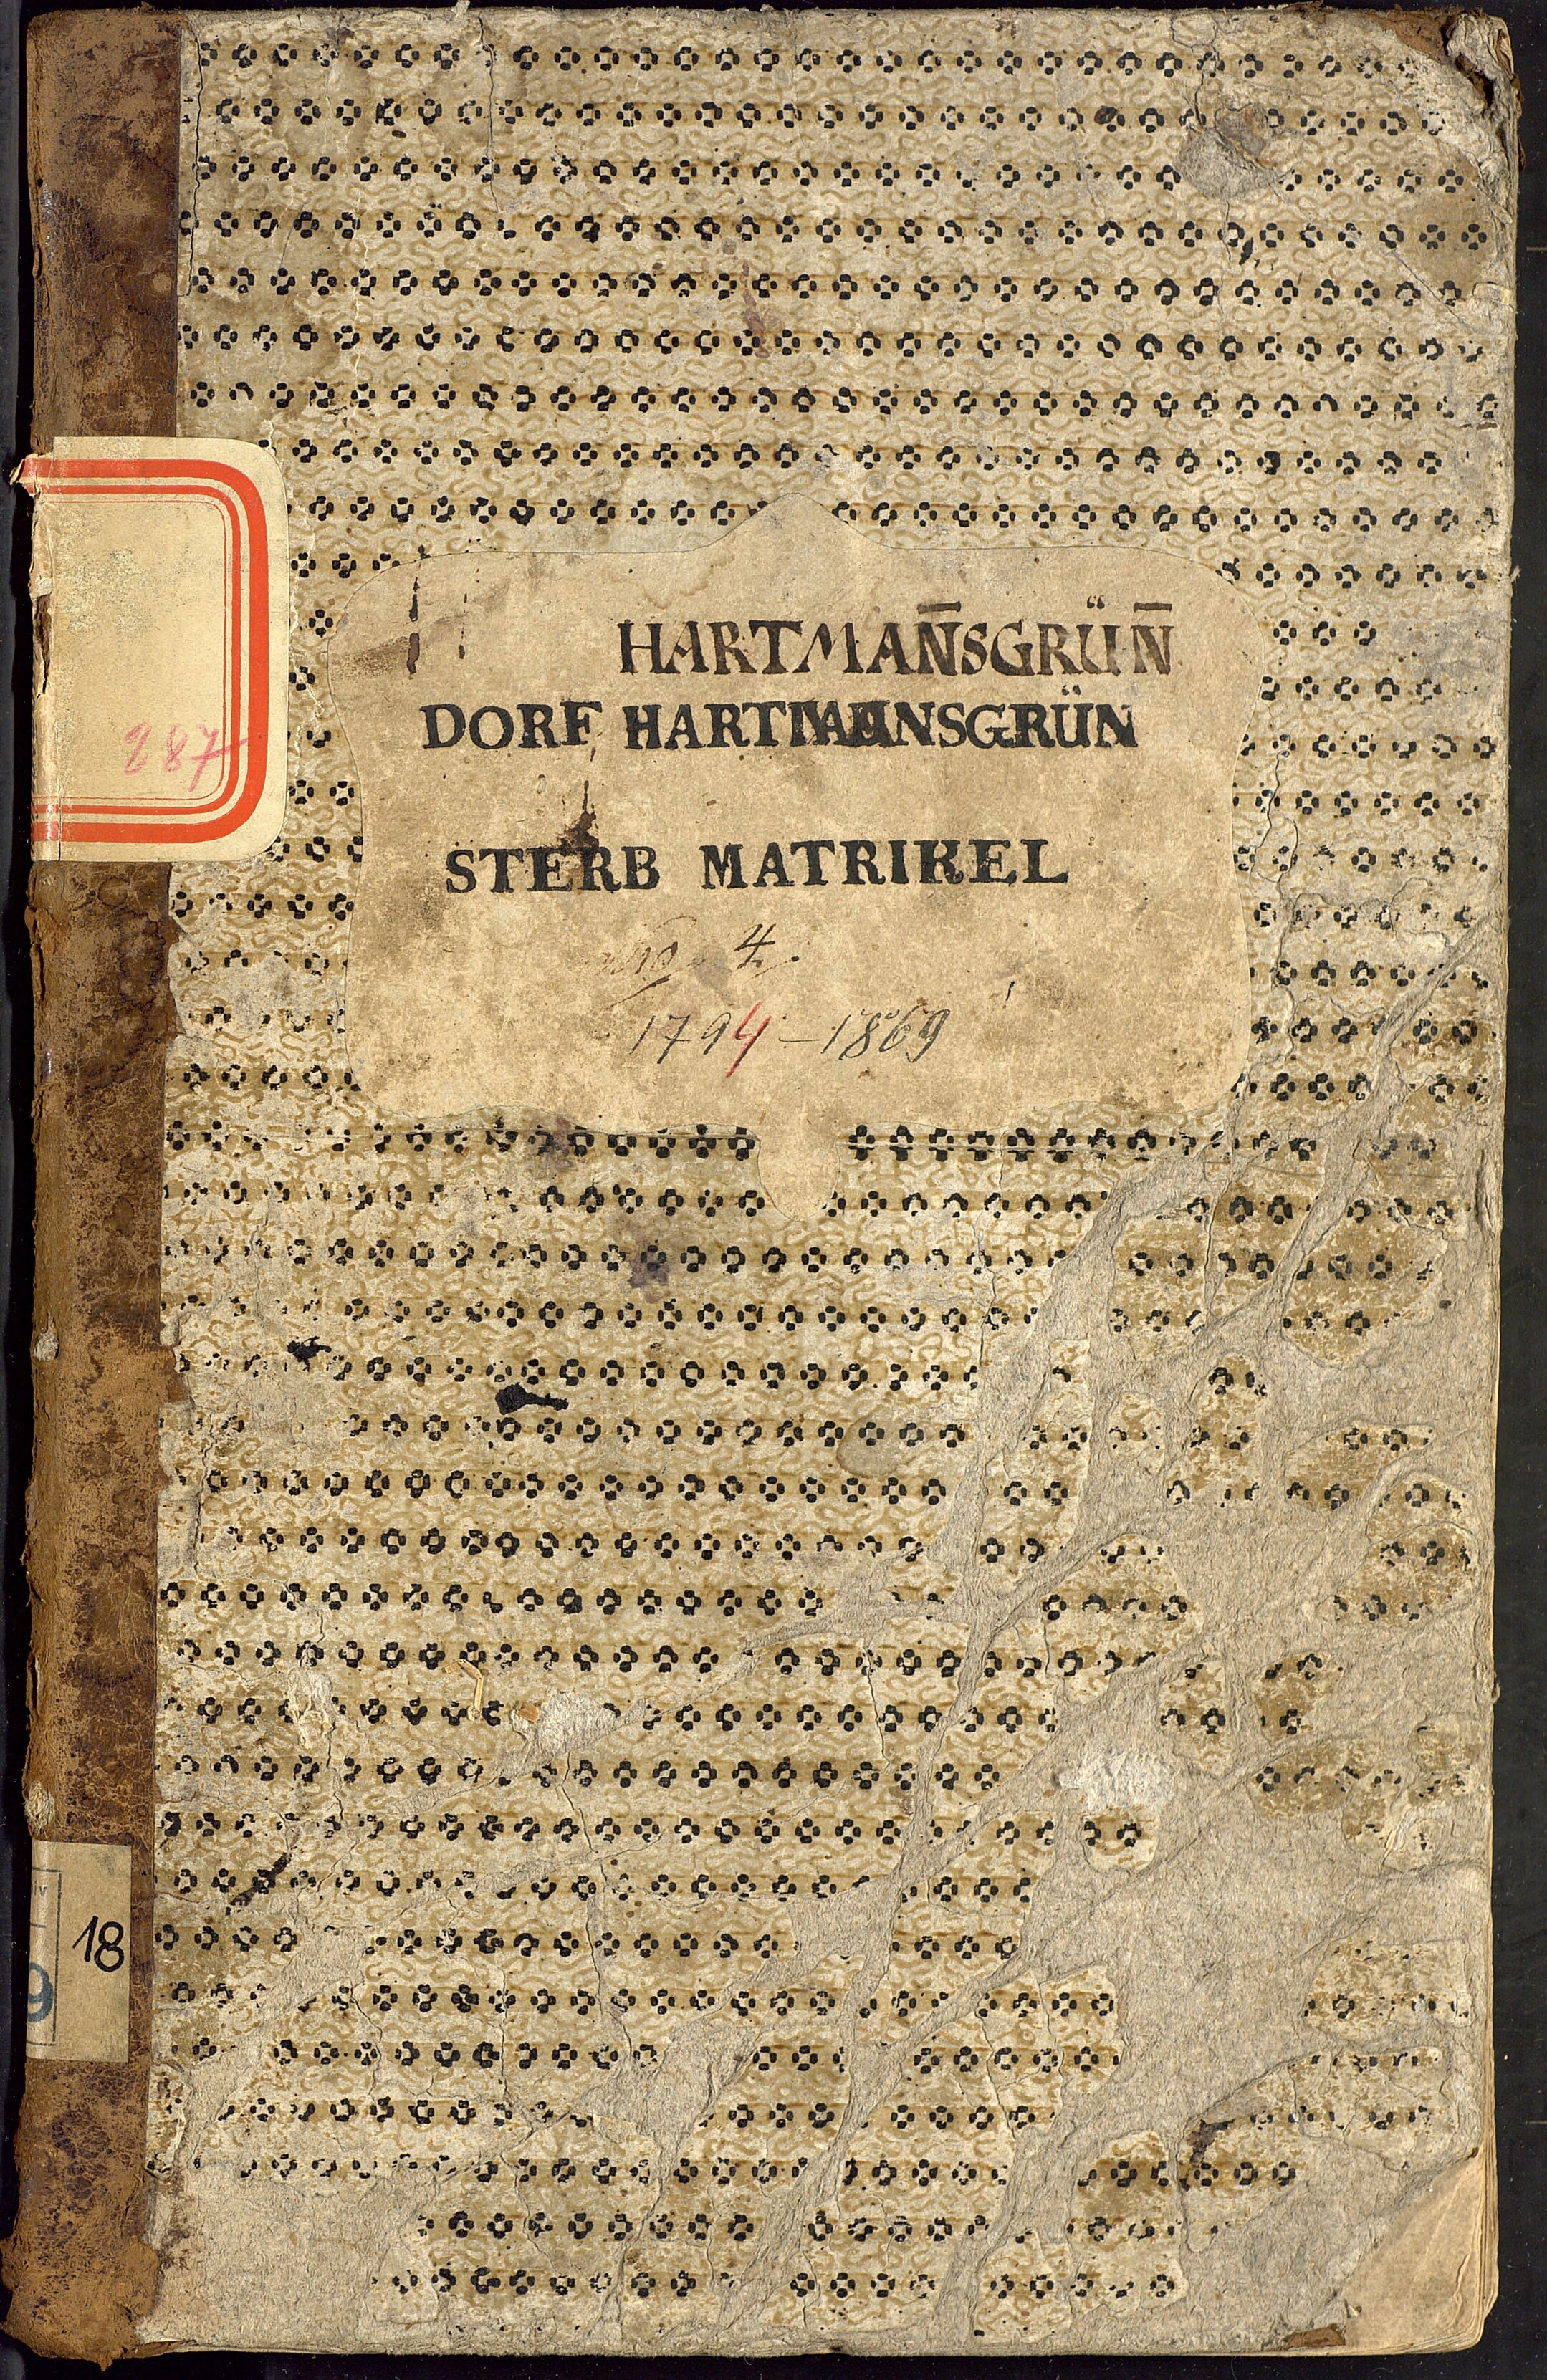 HARTMAN̅SGRÜN̅
DORF HARTMANNSGRÜN
STERB MATRIKEL
No 4.
1794 – 1869
287
IV
18
9